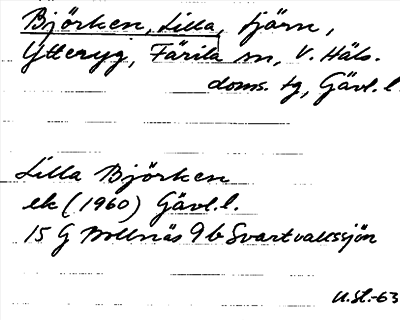 Björken, Lilla, tjärn,
Ytteryg, Färila sn, V. Häls.
doms. tg, Gävl. l.
Lilla Björken
ek (1960) Gävl. l.
15 G Bollnäs 9b Svartvallssjön
U.Sl.-63